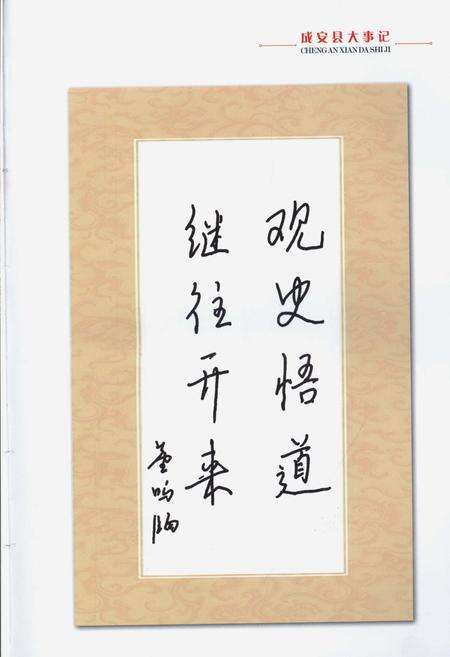 成安县大事记
CHENG AN XIAN DA SHI JI
观史悟道
继往开来
董鸣